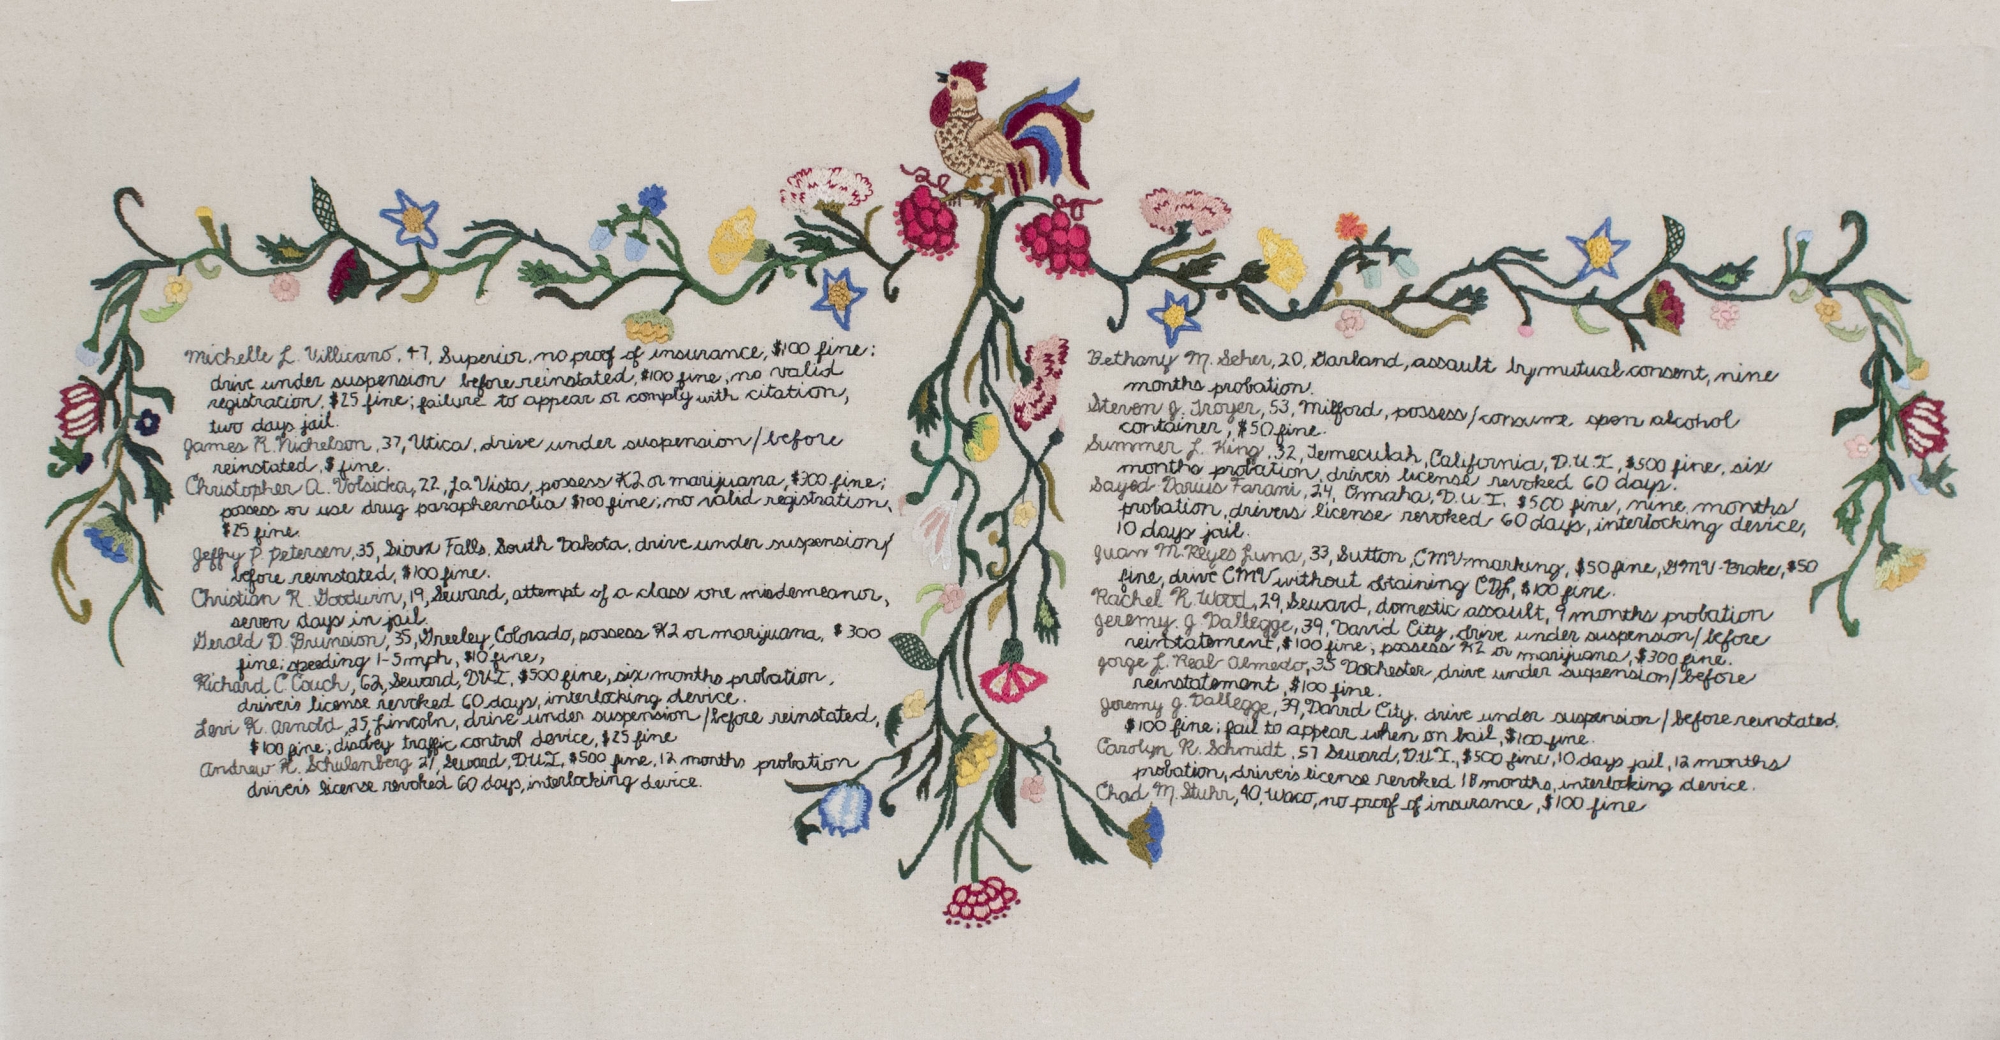 Michelle L. Villicano, 47, Superior, no proof of insurance, $100 fine;
drive under suspension before reinstated, $100 fine, no valid
registration, $25 fine; failure to appear or comply with citation,
two days jail.
James R. Nichelson, 37, Utica, drive under suspension/before
reinstated, $ fine.
Christopher A. Volsicka, 22, La Vista, possess K2 or marijuana, $300 fine;
possess or use drug paraphernalia $100 fine; no valid registration,
$25 fine.
Jeffy P. Petersen, 35, Sioux Falls, South Dakota, drive under suspension/
before reinstated, $100 fine.
Christian R. Goodwin, 19, Seward, attempt of a class one misdemeanor,
seven days in jail.
Gerald D. Brunsion, 35, Greeley, Colorado, possess K2 or marijuana, $300
fine; speeding 1-5 mph, $10 fine,
Richard C. Couch, 62, Seward, DUI, $500 fine, six months probation,
drivers license revoked 60 days, interlocking device.
Levi K. Arnold, 25 Lincoln, drive under suspension/before reinstated,
$100 fine; disobey traffic control device, $25 fine
Andrew H. Schulenberg 21 Seward, DUI, $500 fine, 12 months probation
drivers license revoked 60 days, interlocking device.
Bethany M. Seher, 20, Garland, assault by mutual consent, nine
months probation.
Steven J. Troyer, 53, Milford, possess/consume open alcohol
container, $50 fine.
Summer L. King, 32, Temeculah, California, D.U.I., $500 fine, six
months probation, drivers license revoked 60 days.
Sayed Daruis Farani, 24, Omaha, D.U.I. $500 fine, nine months
probation, drivers license revoked 60 days, interlocking device,
10 days jail.
Juan M. Reyes Luna, 33, Sutton, CMV-marking, $50 fine, GMV-Brake, $50
fine, drive CMV without obtaining CDL, $100 fine.
Rachel R. Wood, 29, Seward, domestic assault, 9 months probation
Jeremy J. Dallegge, 39, David City, drive under suspension/before
reinstatement, $100 fine; possess K2 or marijuana, $300 fine.
Jorge L. Real Almedo, 35 Dorchester, drive under suspension/before
reinstatement, $100 fine.
Jeremy J. Dallegge, 39, David City, drive under suspension/before reinstated,
$100 fine; fail to appear when on bail, $100 fine.
Carolyn R. Schmidt, 57 Seward, D.U.I., $500 fine, 10 days jail, 12 months
probation, drivers license revoked 18 months, interlocking device.
Chad M. Stuhr, 40, Waco, no proof of insurance, $100 fine